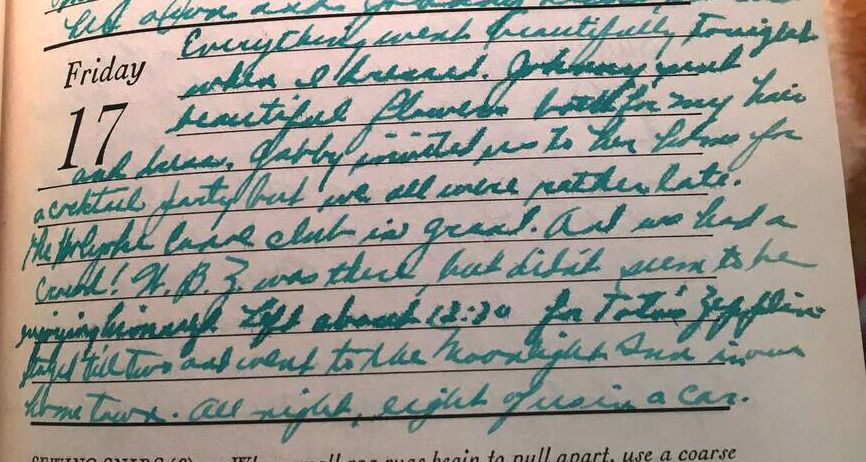 Everything went beautifully tonight
Friday
when I dressed. Johnny sent
17
beautiful flowers both for my hair
and dress. Gabby invited us to her home for
a cocktail party but we all were rather late.
The Holyoke Canoe club is grand. And we had a
crowd! W. B. Z. was there, but didn't seem to be
enjoying himself. Left about 12:30 for Toto's Zeppelin
stayed till two and went to the Moonlight Inn in our
home town. All night, eight of us in a car.
rugs begin to pull apart, use a coarse